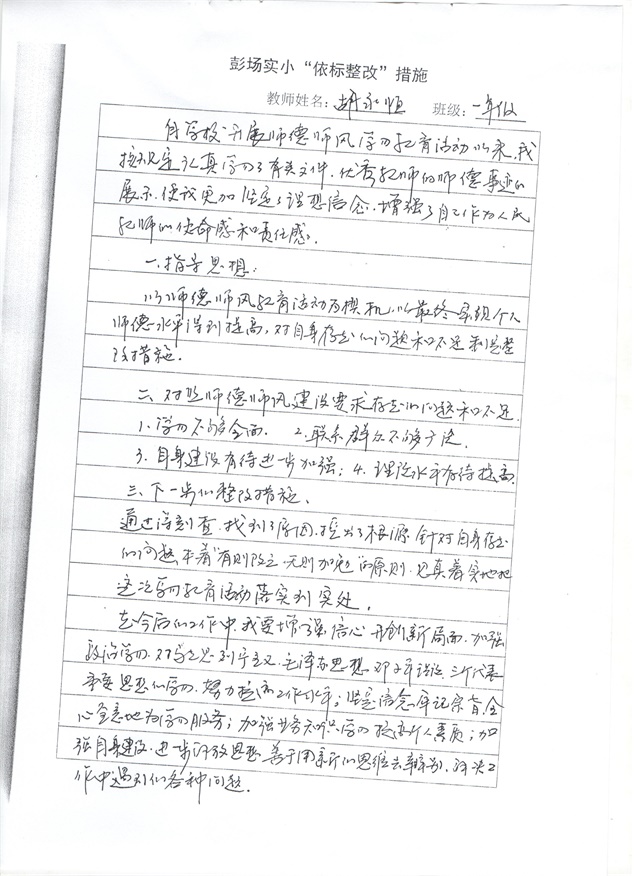 彭场实小“依标整改”措施
教师姓名：胡永恒 班级：一年级
自学校开展师德师风学习教育活动以来，我
按规定认真学习了有关文件，优秀教师的师德事迹的
展示，使我更加坚定了理想信念，增强了自己作为人民
教师的使命感和责任感。
一、指导思想：
以师德师风教育活动为契机，以最终实现个人
师德水平得到提高，对自身存在的问题和不足制定整
改措施。
二、对照师德师风建设要求存在的问题和不足
1、学习不够全面. 2、联系群众不够广泛.
3、自身建设有待进一步加强；4、理论水平有待提高.
三、下一步的整改措施、
通过深刻查，找到了原因，挖出了根源，针对自身存在
的问题本着“有则改之，无则加勉”的原则，认真着实地把
这次学习教育活动落实到实处.
在今后的工作中，我要增强信心开创新局面，加强
政治学习，对马列主义、毛泽东思想、邓小平理论、三个代表
重要思想的学习，努力提高工作水平；坚定信念牢记宗旨，全
心全意地为学习服务；加强业务知识学习提高个人素质；加
强自身建设，进一步解放思想，善于用新的思维去辨别、解决工
作中遇到的各种问题.